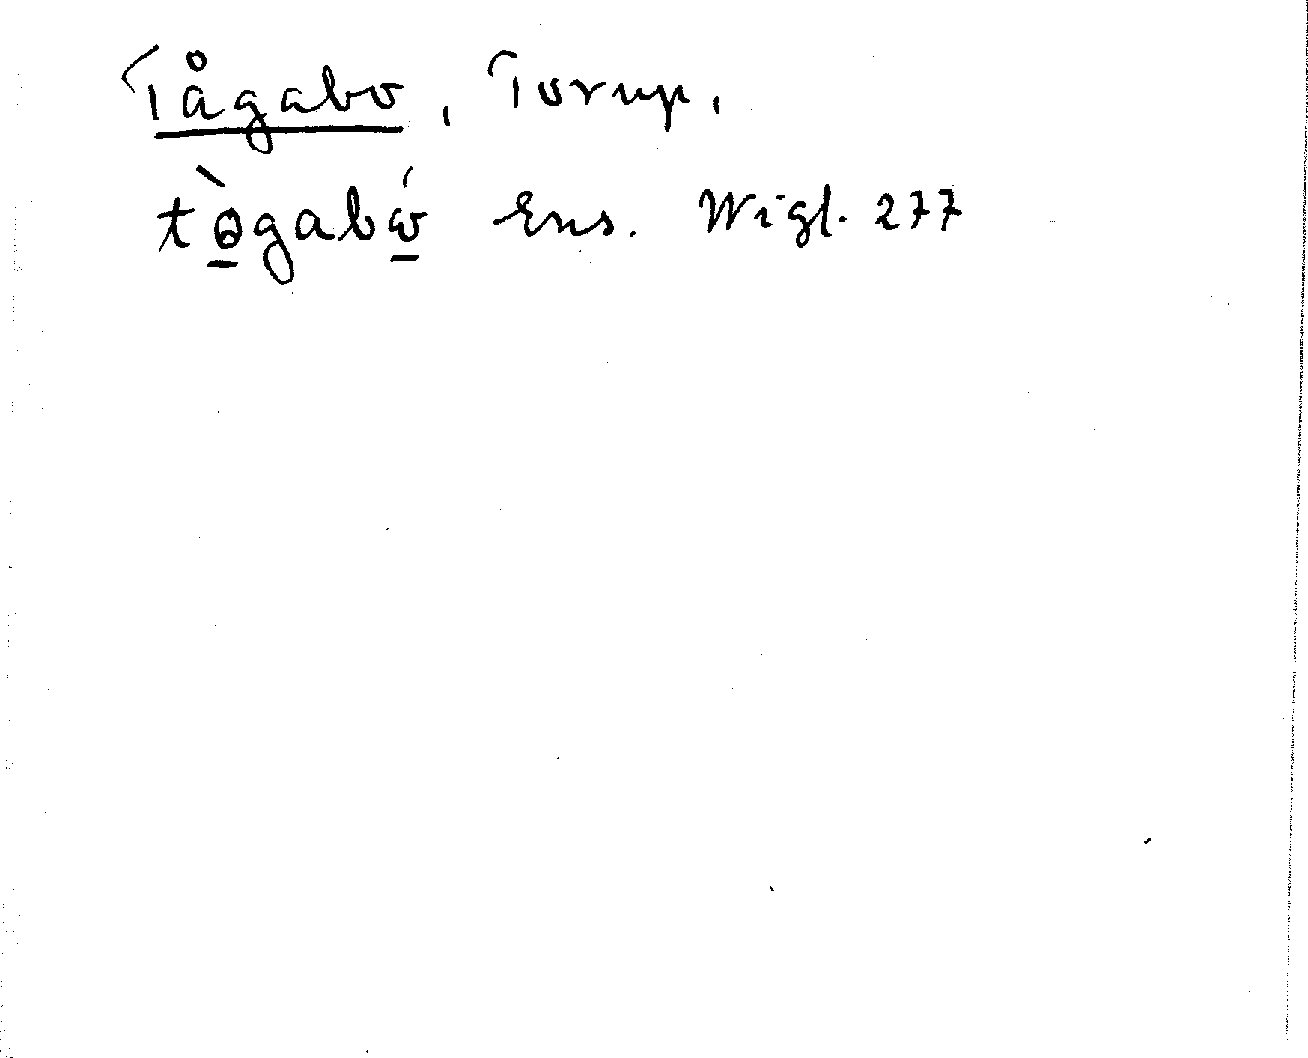 Tågabo, Torup,
tò̱gabó̱ Ens. Wigl. 277